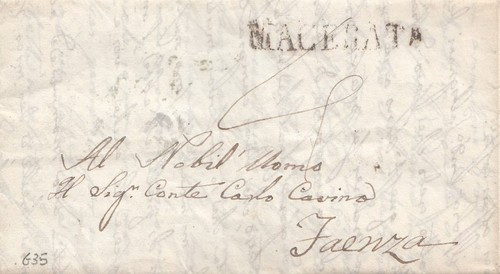 MACERATA
Al Nobil' Uomo
Il Sigr. Conte Carlo Cavina
Faenza
.635